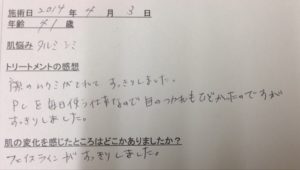 施術日 2014年 4月 3日
年齢 41歳
肌悩み タルミ シミ
トリートメントの感想
顔のムクミがとれて すっきりしました。
PCを毎日使う仕事なので目のつかれもひどかったのですが
すっきりしました。
肌の変化を感じたところはどこかありましたか?
フェイスラインがすっきりしました。